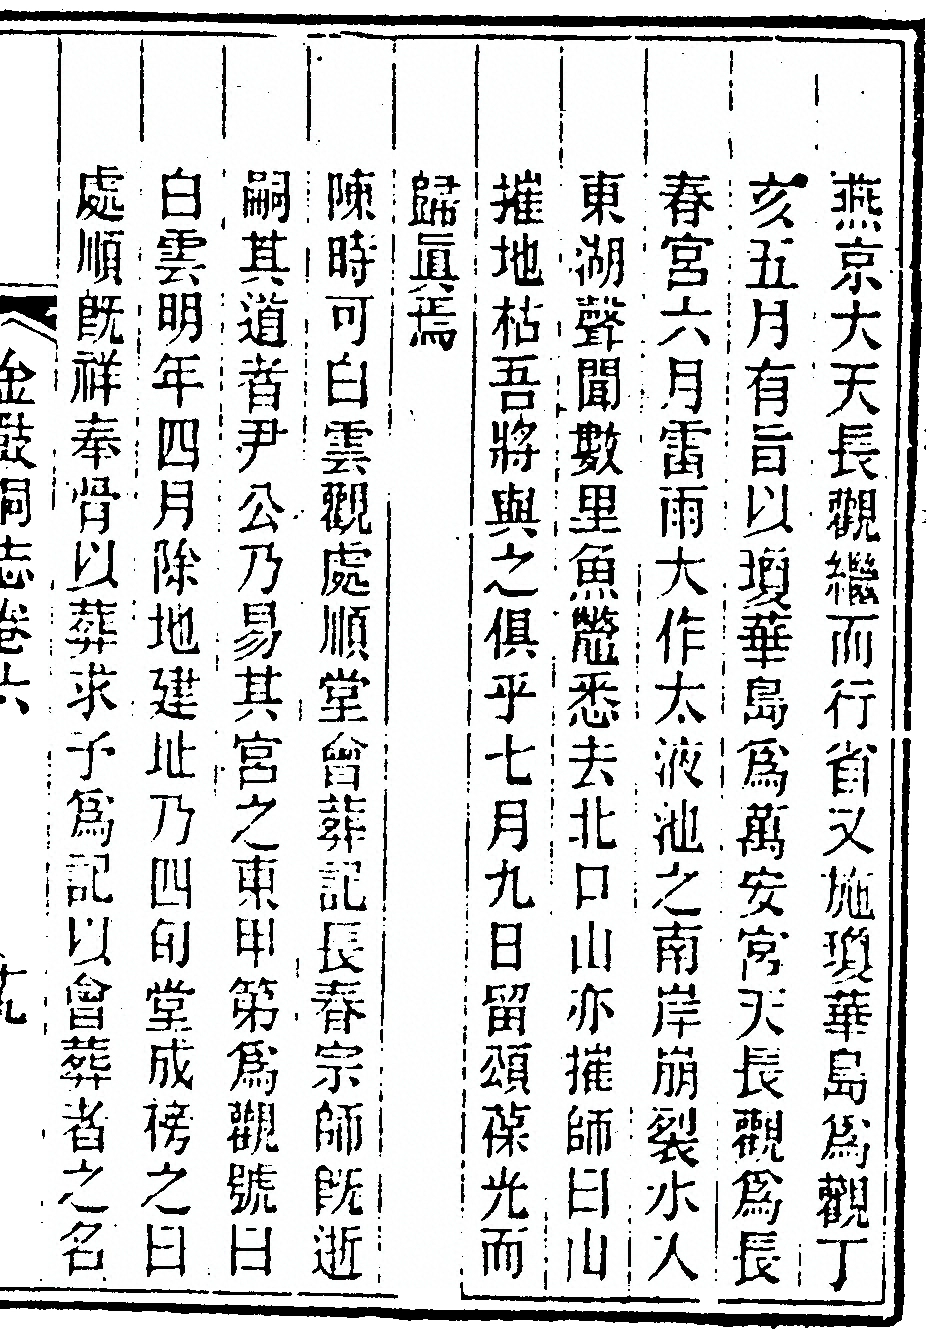 燕京大天長觀繼而行省又施瓊華島為觀丁
亥五月有旨以瓊華島為萬安宮天長觀為長
春宮六月雷雨大作太液池之南岸崩裂水入
東湖聲聞數里魚鼈悉去北口山亦摧師曰山
摧地枯吾將與之俱乎七月九日留頌葆光而
歸眞焉
陳時可白雲觀處順堂會葬記長春宗師既逝
嗣其道者尹公乃易其宮之東甲第為觀號曰
白雲明年四月除地建址乃四旬堂成榜之曰
處順既祥奉骨以葬求予為記以會葬者之名
金鼓洞志卷六
十九